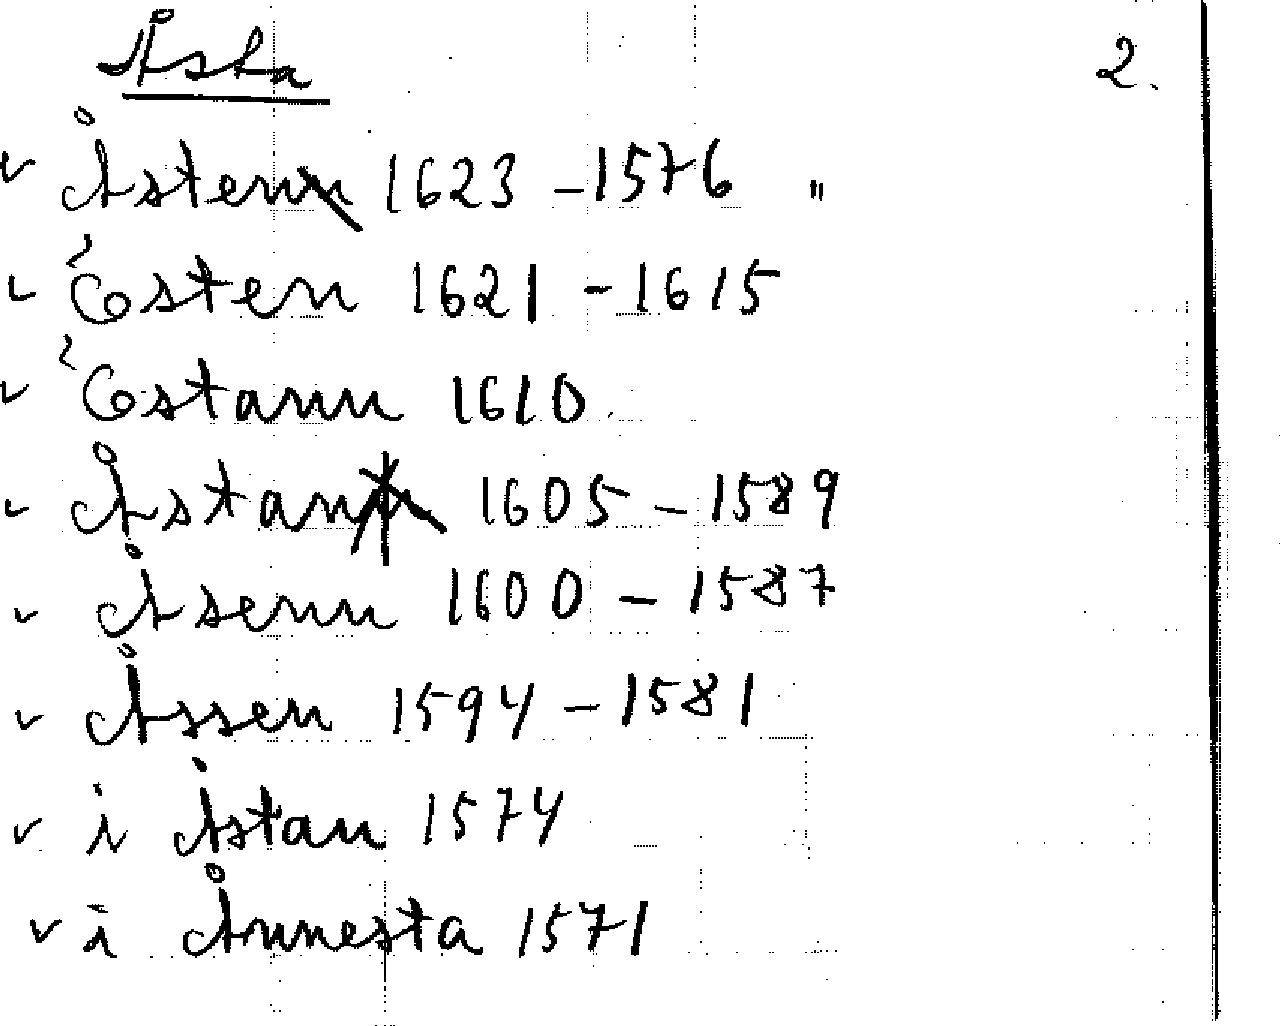 Åsta 2.
v Åstenn 1623 – 1576 "
v Ésten 1621 – 1615
v Éstann 1610
v Åstann 1605 – 1589
v Åsenn 1600 – 1587
v Åssen 1594 – 1581
v i Åstan 1574
v i Ånnesta 1571